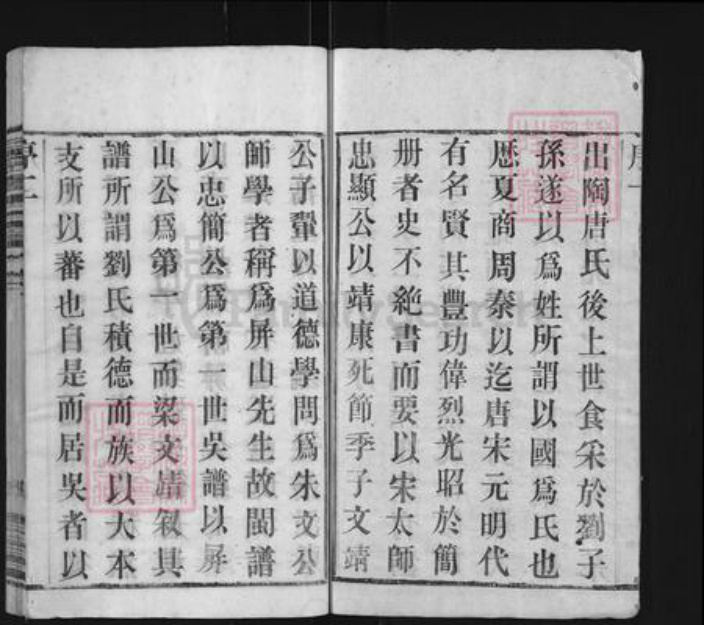 序一
出陶唐氏後上世食采於劉子
孫遂以爲姓所謂以國爲氏也
歷夏商周秦以迄唐宋元明代
有名賢其豐功偉烈光昭於簡
册者史不絶書而要以宋太師
忠顯公以靖康死節季子文靖
公子翬以道德學問爲朱文公
師學者稱爲屏山先生故閩譜
以忠簡公爲第一世吳譜以屏
山公爲第一世而梁文靖叙其
譜所謂劉氏積德而族以大本
支所以蕃也自是而居吳者以
序二
FamilySearch